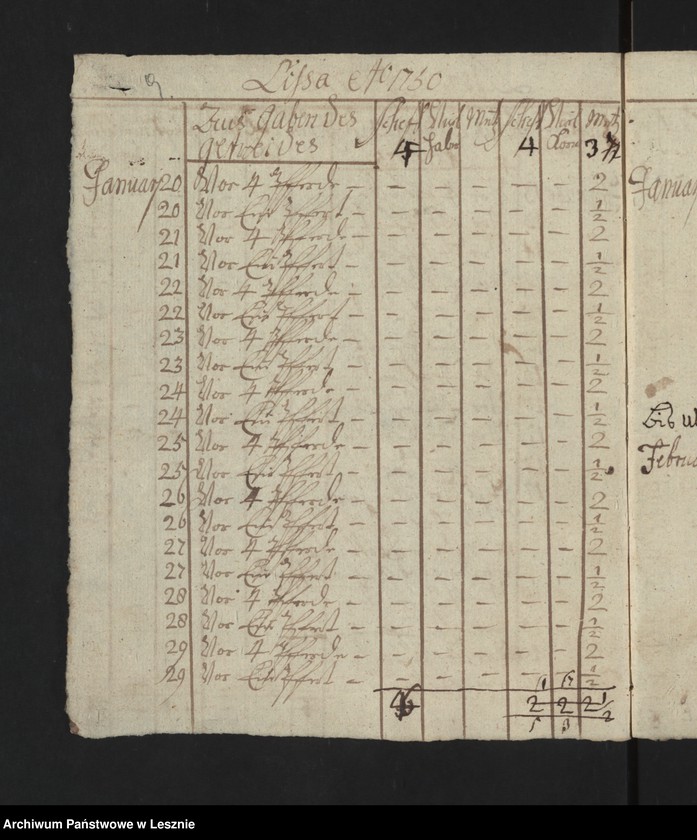 Lissa etc 1750
Aus gaben des
getreides
Scheff Virtl Mtz Scheff Virtl Mtz
4 4 Korn 3
Januar 20 Vor 4 Pferde – – – – – – 2
20 Vor Ein Pferdt – – – – – – 1/2
21 Vor 4 Pferde – – – – – – 2
21 Vor Ein Pferdt – – – – – – 1/2
22 Vor 4 Pferde – – – – – – 2
22 Vor Ein Pferdt – – – – – – 1/2
23 Vor 4 Pferde – – – – – – 2
23 Vor Ein Pferdt – – – – – – 1/2
24 Vor 4 Pferde – – – – – – 2
24 Vor Ein Pferdt – – – – – – 1/2
25 Vor 4 Pferde – – – – – – 2
25 Vor Ein Pferdt – – – – – – 1/2
26 Vor 4 Pferde – – – – – – 2
26 Vor Ein Pferdt – – – – – – 1/2
27 Vor 4 Pferde – – – – – – 2
27 Vor Ein Pferdt – – – – – – 1/2
28 Vor 4 Pferde – – – – – – 2
28 Vor Ein Pferdt – – – – – – 1/2
29 Vor 4 Pferde – – – – – – 2
29 Vor Ein Pferdt – – – – – – 1/2
2 2 2 1/2
Januar
Bis
Februa
Archiwum Państwowe w Lesznie